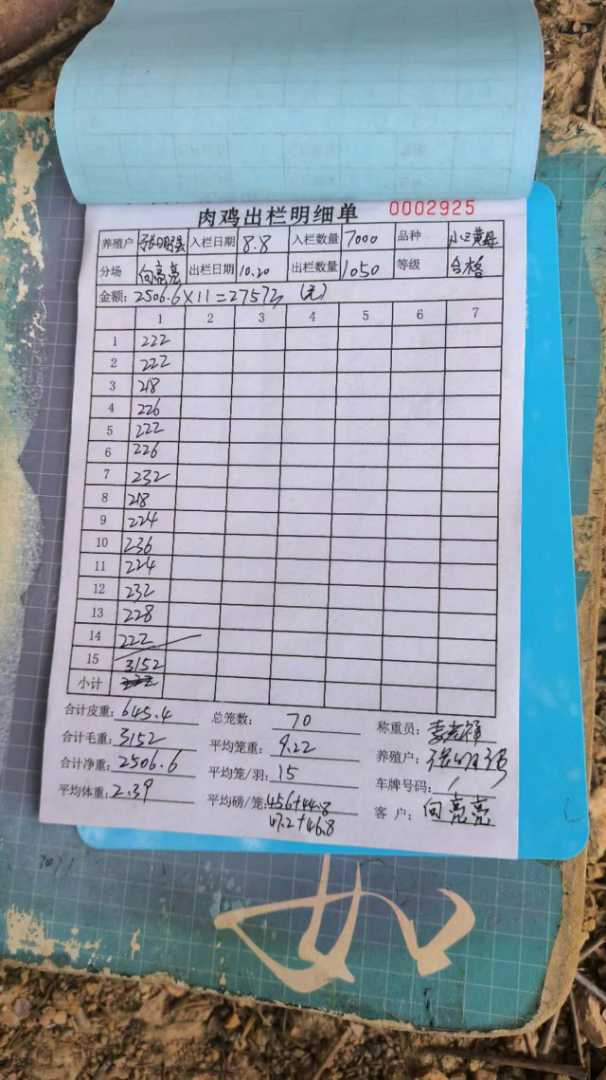 肉鸡出栏明细单 0002925
养殖户 张明强 入栏日期 8.8 入栏数量 7000 品种 小三黄母
分场 向亮亮 出栏日期 10.20 出栏数量 1050 等级 合格
金额: 2506.6×11=27572 (元)
1 2 3 4 5 6 7
1 222
2 222
3 218
4 226
5 222
6 226
7 232
8 218
9 224
10 236
11 224
12 232
13 228
14 222
15 3152
小计
合计皮重: 645.4 总笼数: 70 称重员:
合计毛重: 3152 平均笼重: 9.22 养殖户: 张明强
合计净重: 2506.6 平均笼/羽: 15 车牌号码:
平均体重: 2.39 平均磅/笼: 45.6+44.8 客户: 向亮亮
47.2+46.8